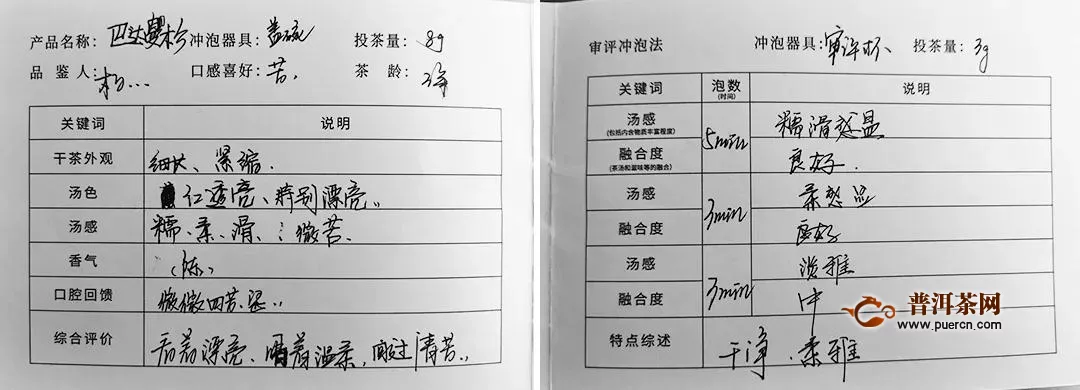 产品名称: 冲泡器具: 盖碗 投茶量: 8g
品鉴人: 口感喜好: 苦. 茶龄:
关键词 说明
干茶外观 细长、紧缩.
汤色 红透亮、特别漂亮..
汤感 糯、柔、滑、微苦.
香气 (陈)
口腔回馈 微微
综合评价 漂亮、 温柔, 清苦..
审评冲泡法 冲泡器具: 审评杯 投茶量: 3g
关键词 泡数(时间) 说明
汤感(包括内含物质丰富程度) 5min 糯滑感显
融合度(茶汤和滋味等的融合) 良好.
汤感 3min 柔感显
融合度 良好
汤感 3min 淡雅
融合度 中
特点综述 干净、柔雅
普洱茶网
www.puercn.com